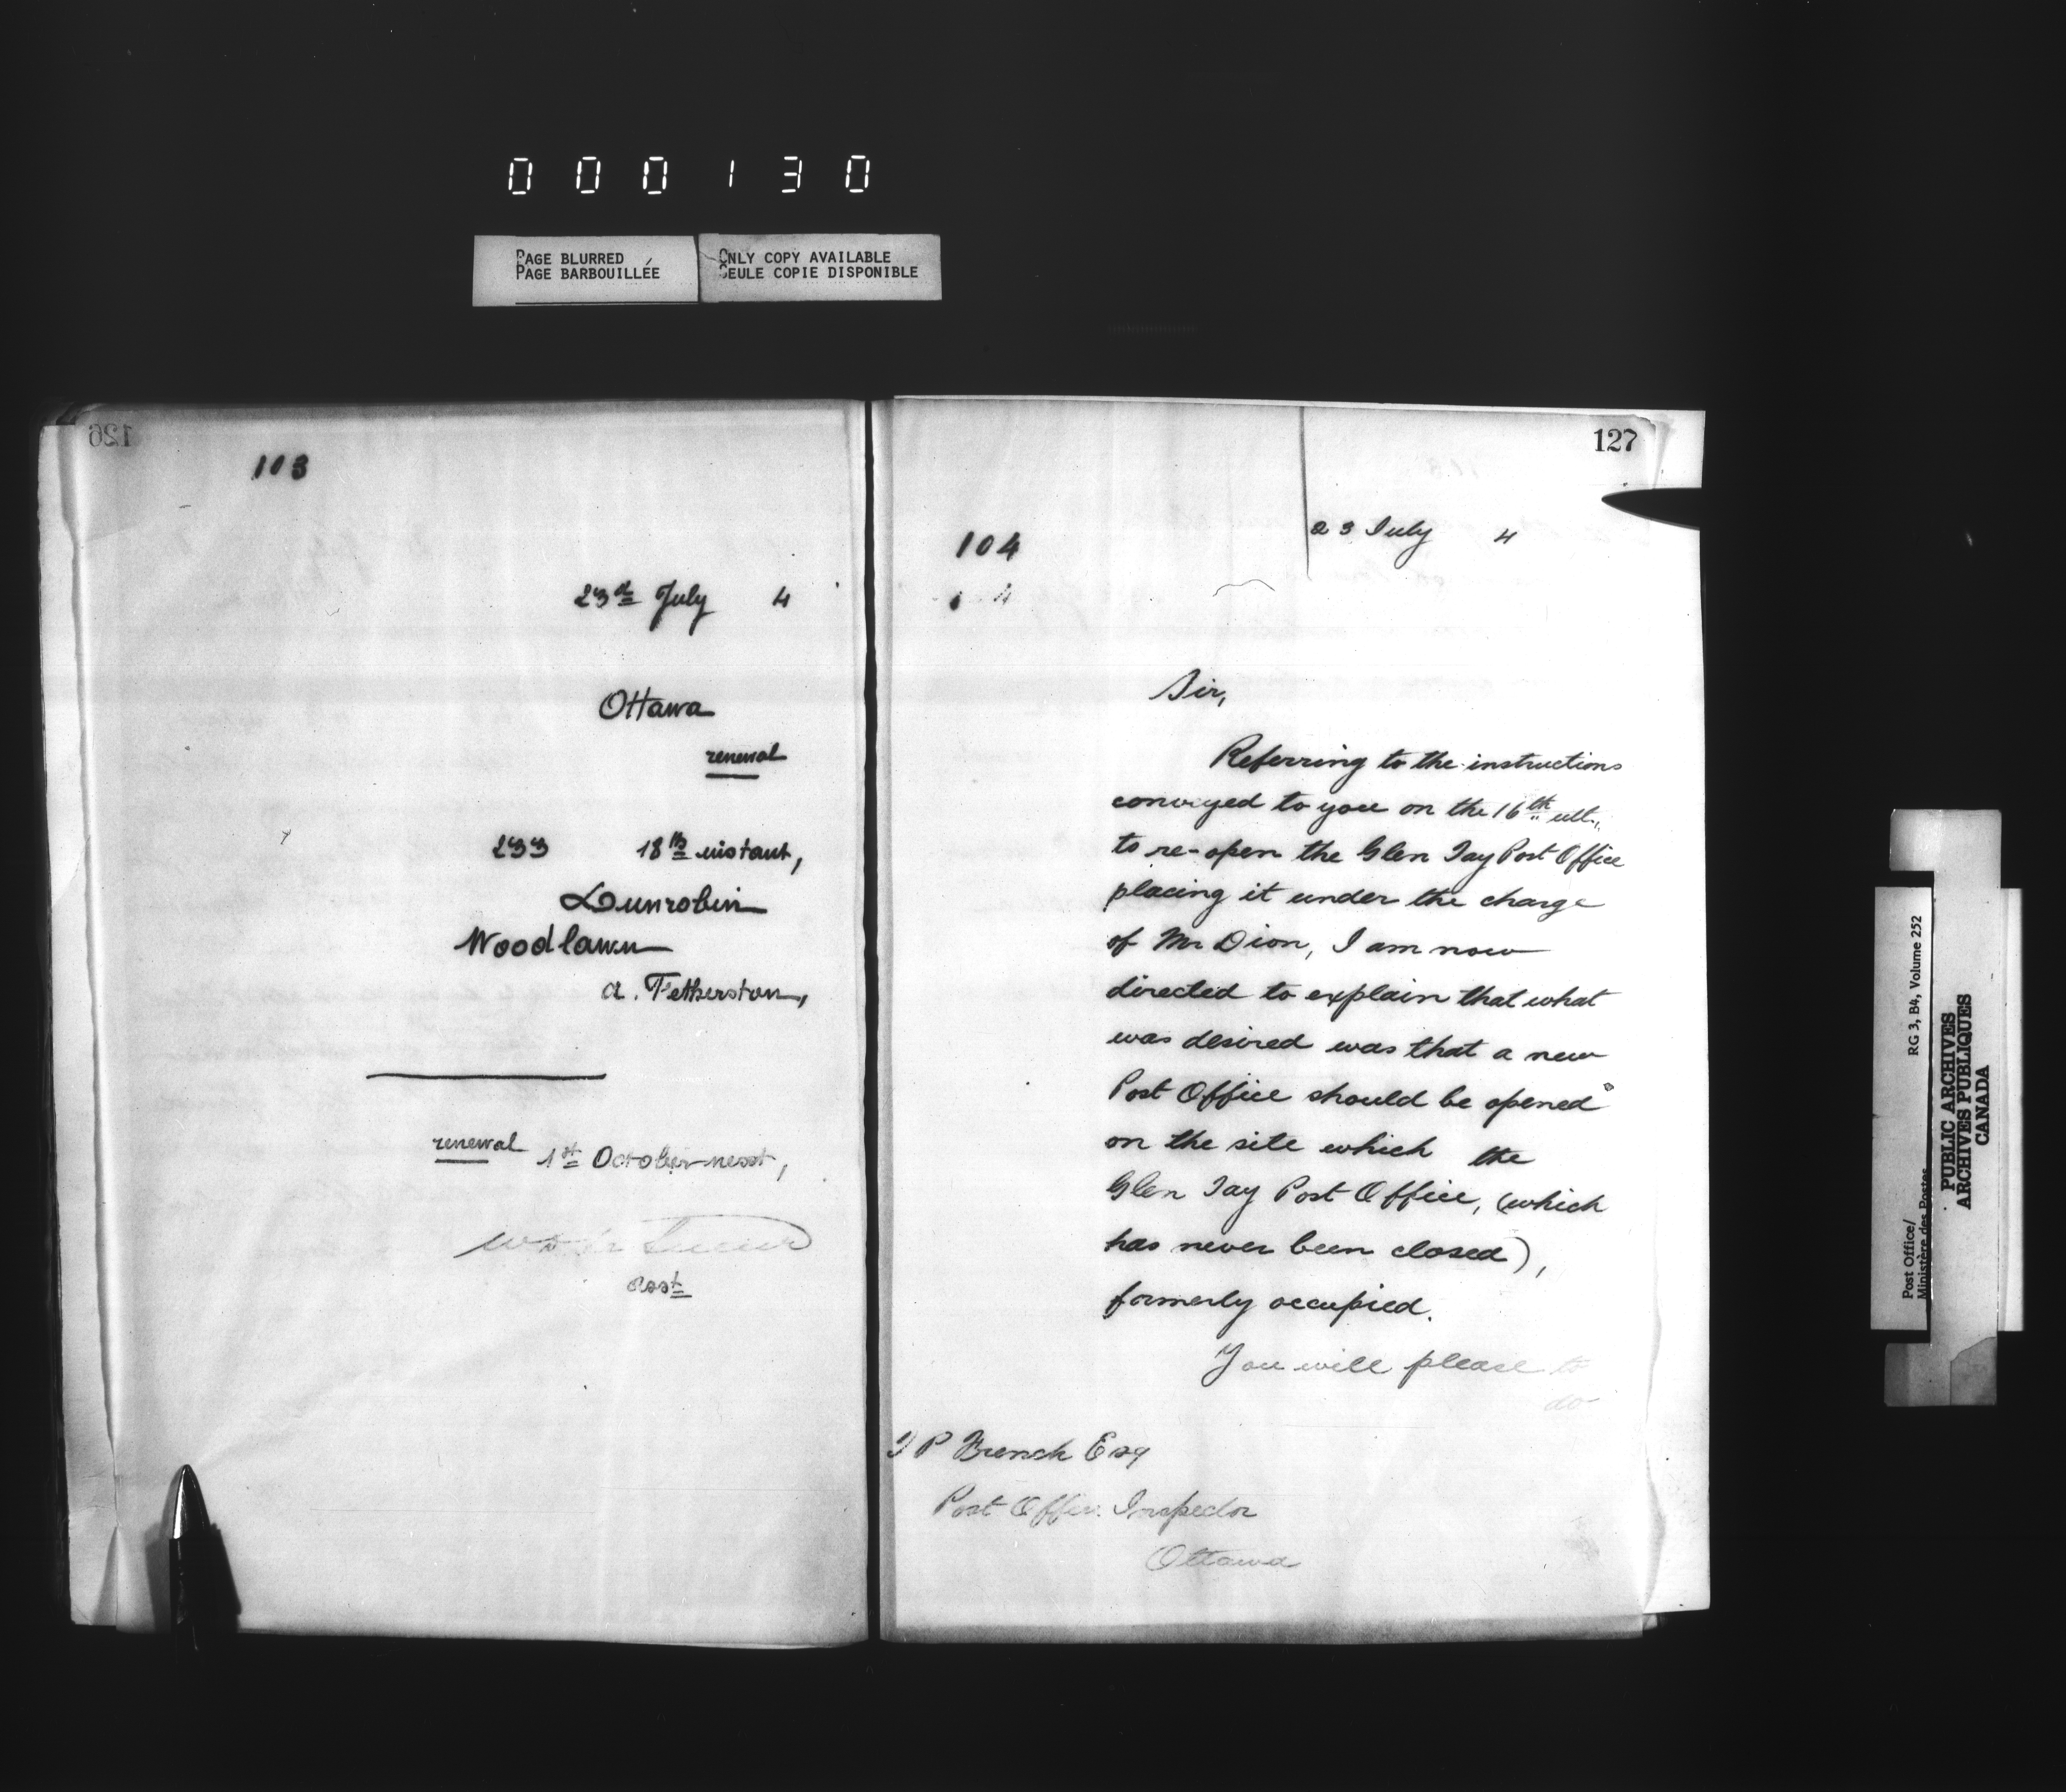 0 0 0 1 3 0
PAGE BLURRED
PAGE BARBOUILLÉE
ONLY COPY AVAILABLE
SEULE COPIE DISPONIBLE
126
103
23rd July 4
Ottawa
renewal
233 18th instant,
Dunrobin
Woodlawn
A. Fetherston,
renewal 1st October next,
Asst
127
23 July 4
104
Sir,
Referring to the instructions
conveyed to you on the 16th ult.,
to re-open the Glen Tay Post Office
placing it under the charge
of Mr Dion, I am now
directed to explain that what
was desired was that a new
Post Office should be opened
on the site which the
Glen Tay Post Office, (which
has never been closed),
formerly occupied.
You will please to
do
P French Esq
Post Office Inspector
Ottawa
Post Office/
Ministère des Postes
RG 3, B4, Volume 252
PUBLIC ARCHIVES
ARCHIVES PUBLIQUES
CANADA